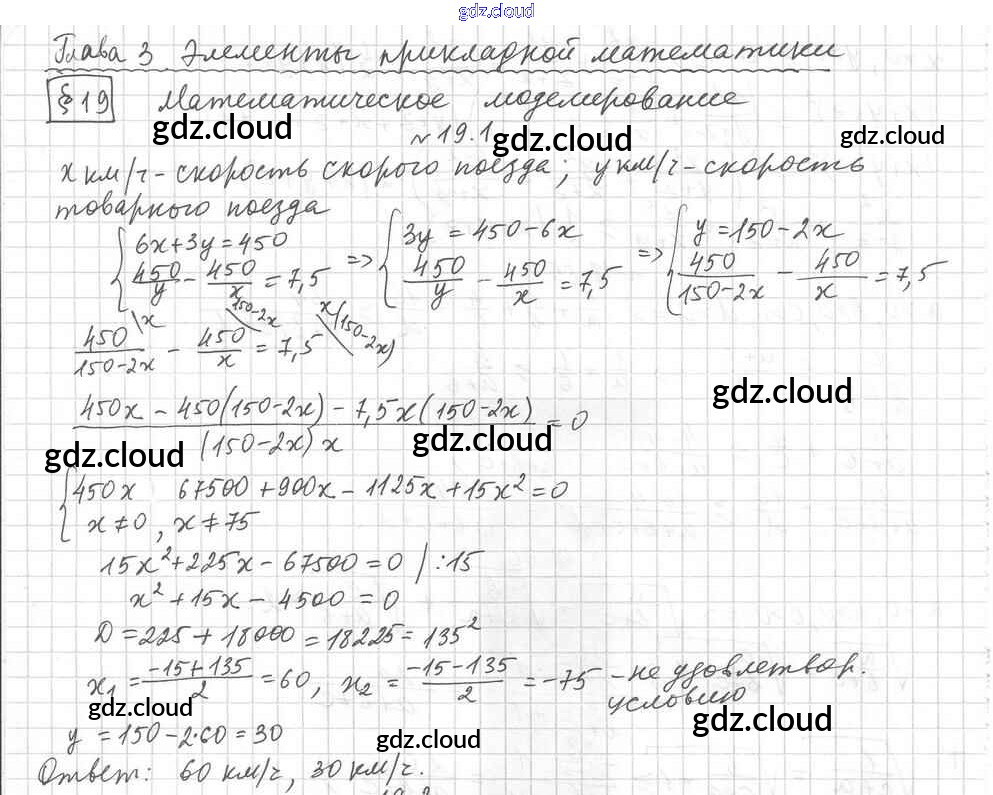 gdz.cloud
Глава 3 Элементы прикладной математики
§ 19 Математическое моделирование
gdz.cloud
№ 19.1
gdz.cloud
gdz.cloud
x км/ч - скорость скорого поезда; y км/ч - скорость
товарного поезда
{ 6x + 3y = 450 => { 3y = 450 - 6x => { y = 150 - 2x
450/y - 450/x = 7,5 450/y - 450/x = 7,5 450/(150-2x) - 450/x = 7,5
450/(150-2x) \x - 450/x \150-2x = 7,5 \x(150-2x)
gdz.cloud
(450x - 450(150-2x) - 7,5x(150-2x))/((150-2x)x) = 0
gdz.cloud
gdz.cloud
{ 450x 67500 + 900x - 1125x + 15x² = 0
x ≠ 0, x ≠ 75
15x² + 225x - 67500 = 0 | :15
x² + 15x - 4500 = 0
D = 225 + 18000 = 18225 = 135²
x₁ = (-15+135)/2 = 60, x₂ = (-15-135)/2 = -75 - не удовлетвор.
условию
gdz.cloud
gdz.cloud
y = 150 - 2·60 = 30
gdz.cloud
Ответ: 60 км/ч, 30 км/ч.